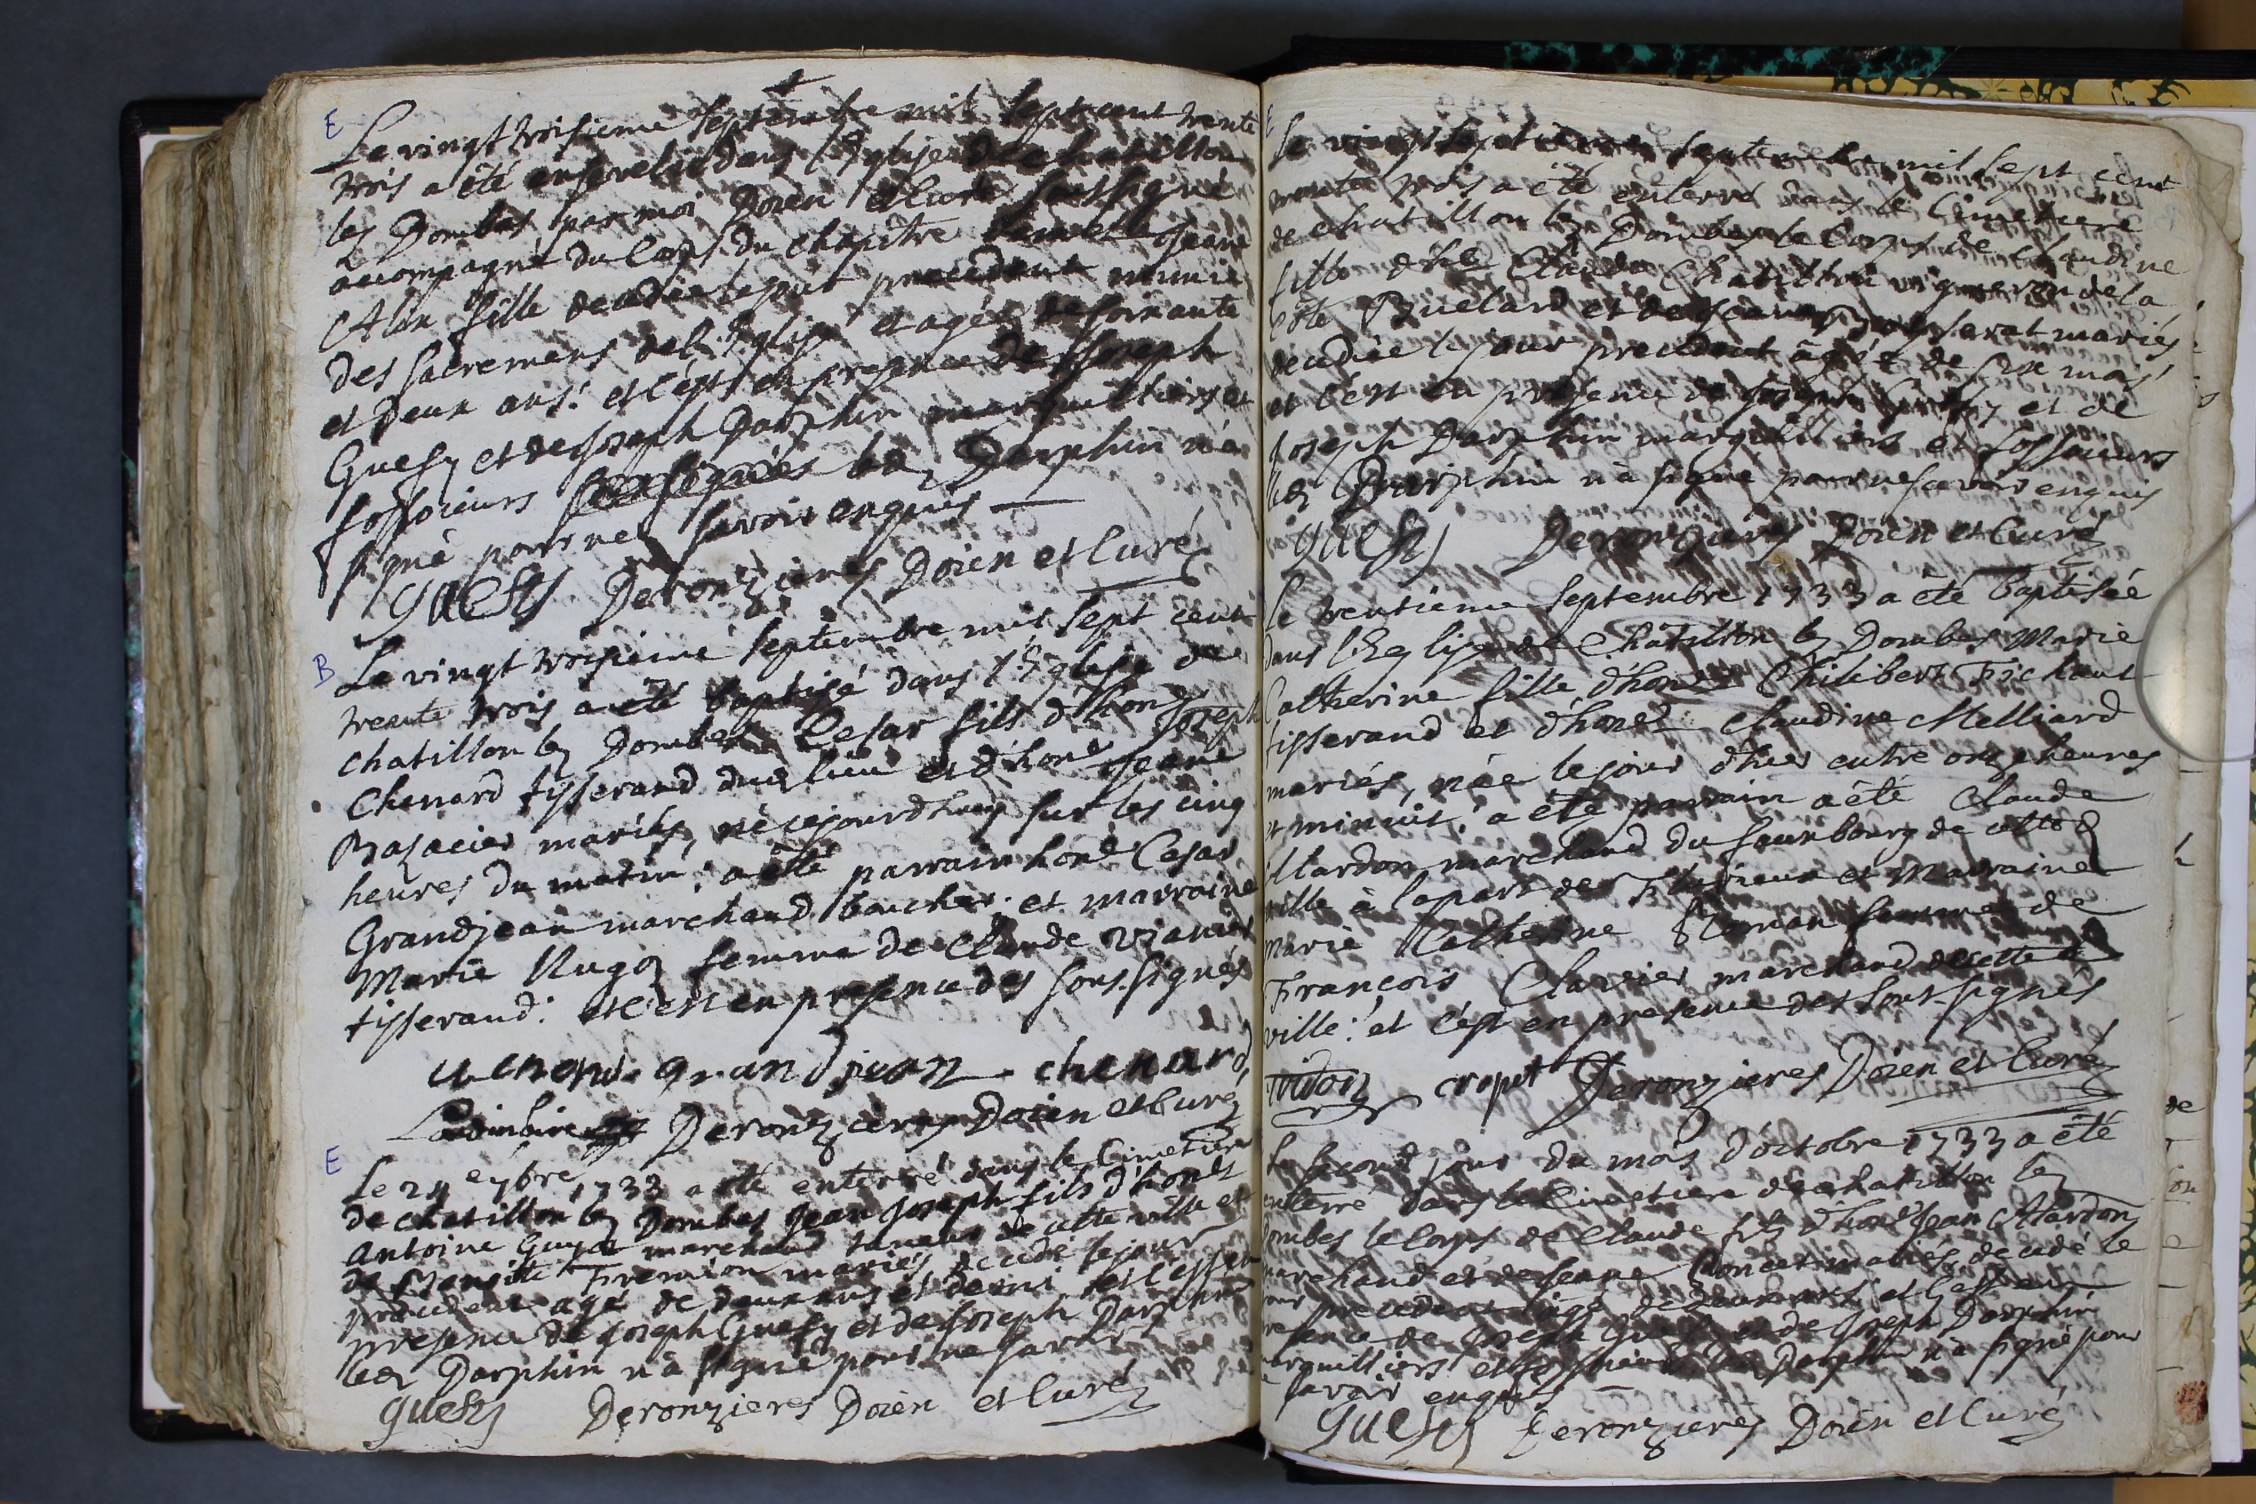 E
Le vingt troisieme septembre mil sept cent trente
trois a été ensevelie dans l'Eglise de chatillon
les Dombes par moi Doien et Curé soussigné
accompagné du Corps du chapitre Jeane
Alin fille decedée le jour precedent munie
des sacremens de l'Eglise et agée de soixante
et deux ans: et c'est en presence de Joseph
Guesy et de Joseph Darphin marguilliers et
fossoieurs soussignés led Darphin n'a
signé pour ne savoir enquis
guesy Deronzieres Doien et Curé
B
Le vingt troisieme septembre mil sept cent
trente trois a été baptisé dans l'Eglise de
chatillon les Dombes Cesar fils d'hone Joseph
Chenard tisserand dud lieu et d'hone Jeane
Bazacier mariés, né cejourdhuy sur les cinq
heures du matin: a été parrain hone Cesar
Grandjean marchand boucher. et marraine
Marie Hugon femme de Claude vianier
tisserand: et c'est en presence des sous-signés
grandjean chenard
Deronzieres Doien et Curé
E
Le 24 7bre 1733 a été enterré dans le Cimetiere
de chatillon les Dombes Jean Joseph fils d'hone
Antoine Guyot marchand taneur de cette ville et
de Fremion mariés decedé le jour
precedent agé de deux ans et demi et c'est en
presence de Joseph Guesy et de Joseph Darphin
led Darphin n'a signé pour ne savoir
guesy Deronzieres Doien et Curé
E
Le vingt septieme septembre mil sept cent
trente trois a été enterré dans le Cimetiere
de chatillon les Dombes le Corps de Claudine
fille d'hone Claude Chatillon vigneron de la
Côte Buelard et de Jeane mariés
decedée le jour precedent âgée de six mois
et c'est en presence de Joseph Guesy et de
Joseph Darphin marguilliers et fossoieurs
led Darphin n'a signé pour ne savoir enquis
guesy Deronzieres Doien et Curé
Le trentieme septembre 1733 a été baptisée
dans l'Eglise de Chatillon les Dombes Marie
Catherine fille d'hone Philibert Fichaut
tisserand et d'hone Claudine Melliard
mariés, née le jour d'hier entre onze heures
et minuit: a été parrain a été Claude
Alardon marchand du fauxbourg de cette
ville à la part de Flurieux et Marraine
Marie Catherine Roman femme de
François Clavier marchand de cette
ville: et c'est en presence des sous-signés
cropet Deronzieres Doien et Curé
Le second jour du mois d'octobre 1733 a été
enterré dans le Cimetiere de chatillon les
Dombes le Corps de Claude fils d'hone Jean Alardon
marchand et de Jeane Poncet mariés, decedé le
jour precedent âgé de deux ans et c'est en
presence de Joseph Guesy et de Joseph Darphin
marguilliers et fossoieurs led Darphin n'a signé pour
ne savoir enquis
guesy Deronzieres Doien et Curé